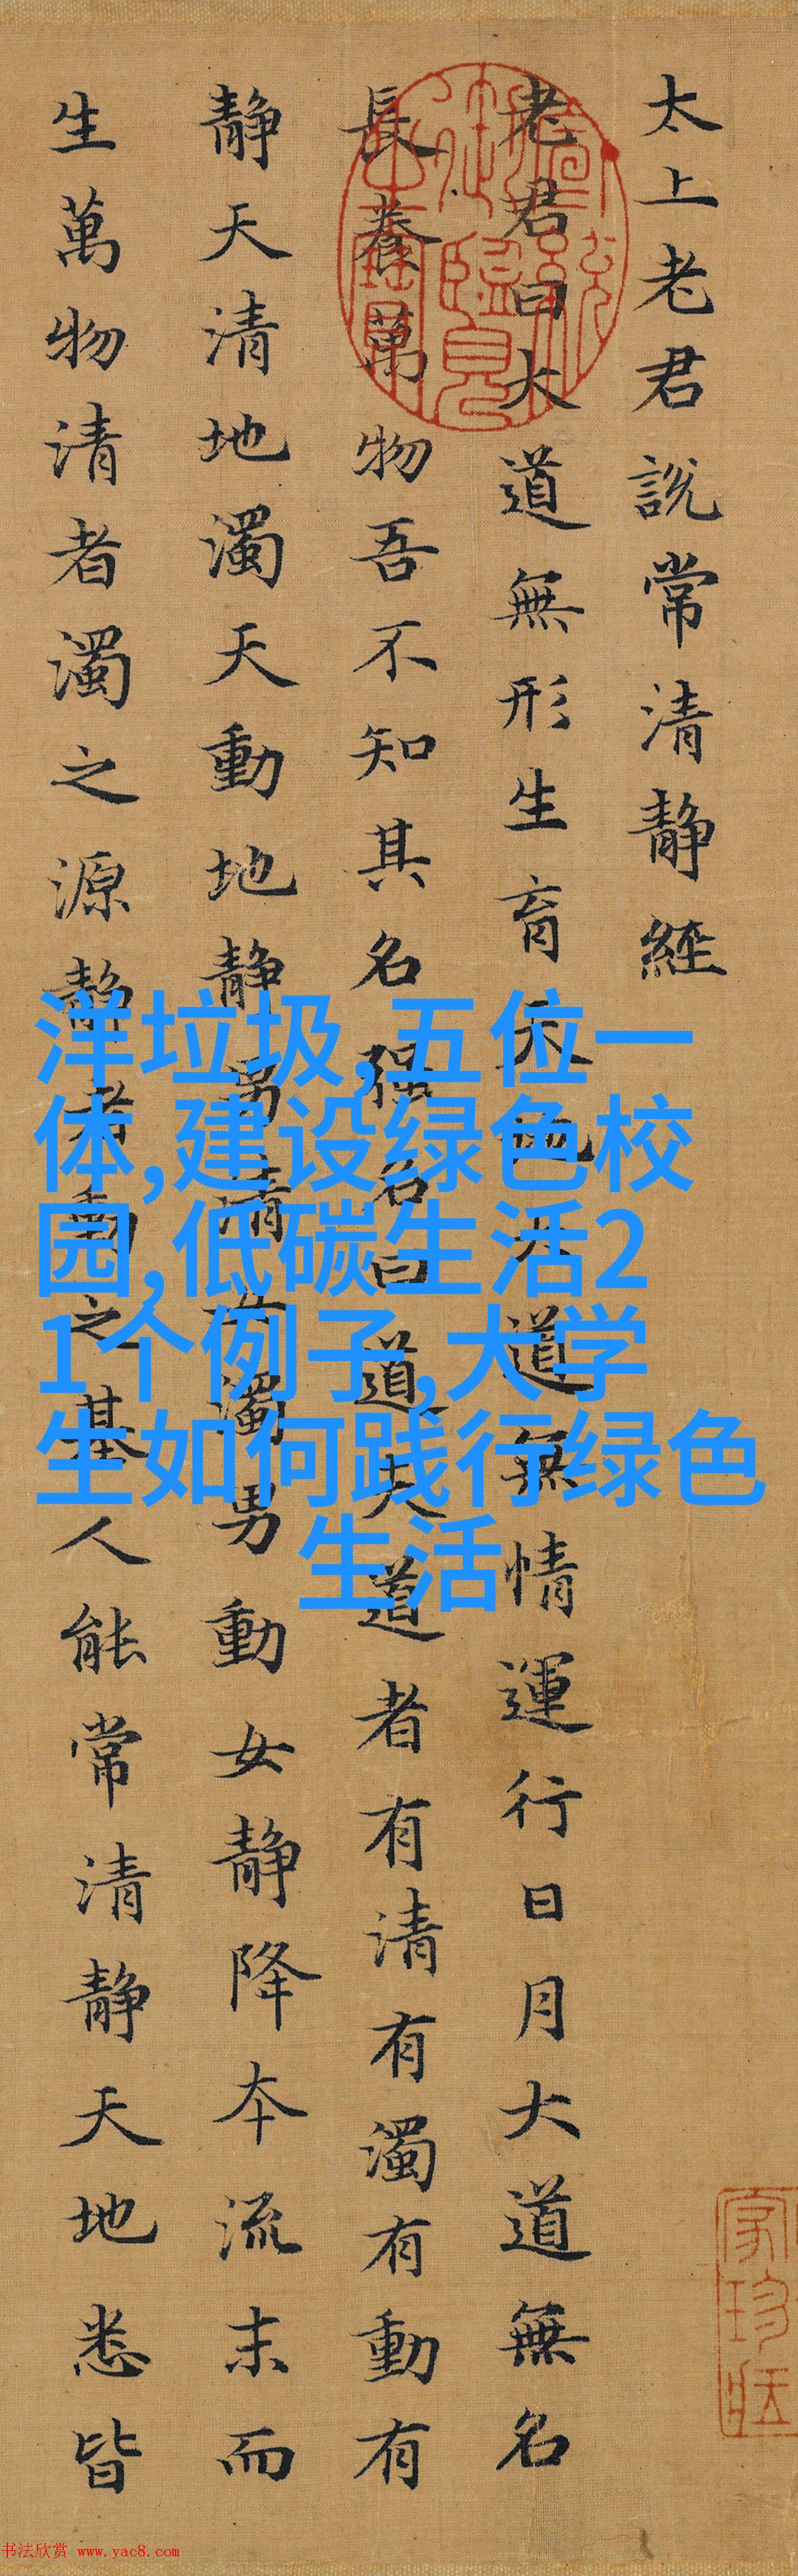 太上老君說常清靜經
老君曰大道無形生育天地大道無情運行日月大道無名
長養萬物吾不知其名强名曰道夫道者有清有濁有動有
靜天清地濁天動地靜男清女濁男動女靜降本流末而
生萬物清者濁之源靜者動之基人能常清靜天地悉皆
洋垃圾,五位一
体,建设绿色校
园,低碳生活2
1个例子,大学
生如何践行绿色
生活
书法欣赏 www.yac8.com